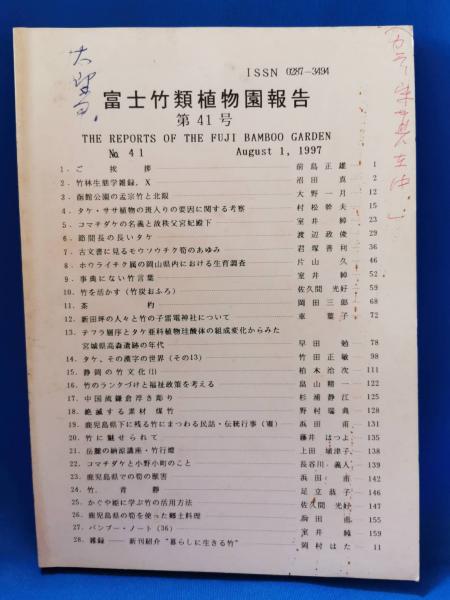 大野白
カラー写真在中
ISSN 0287-3494
富士竹類植物園報告
第41号
THE REPORTS OF THE FUJI BAMBOO GARDEN
No. 41 August 1, 1997
1. ご挨拶 前島正雄 1
2. 竹林生態学雑録, X 沼田真 2
3. 函館公園の孟宗竹と北限 大野一月 12
4. タケ・ササ植物の斑入りの要因に関する考察 村松幹夫 15
5. コマチダケの名義と故秩父宮妃殿下 室井綽 23
6. 節間長の長いタケ 渡辺政俊 29
7. 古文書に見るモウソウチク筍のあゆみ 君塚善利 36
8. ホウライチク属の岡山県内における生育調査 片山久 46
9. 事典にない竹言葉 室井綽 52
10. 竹を活かす(竹炭おふろ) 佐久間光好 59
11. 茶杓 岡田三郎 68
12. 新田坪の人々と竹の子雷電神社について 車葉子 72
13. テフラ層序とタケ亜科植物珪酸体の組成変化からみた
宮城県高森遺跡の年代 早田勉 78
14. タケ、その漢字の世界(その13) 竹田正敏 98
15. 静岡の竹文化(1) 柏木治次 111
16. 竹のランクづけと福祉政策を考える 畠山精一 122
17. 中国流鎌倉浮き彫り 杉浦静江 125
18. 絶滅する素材 煤竹 野村瑞典 128
19. 鹿児島県下に残る竹にまつわる民話・伝統行事 浜田甫 131
20. 竹に魅せられて 藤井はつよ 135
21. 岳麓の納涼講座・竹行燈 上田城津子 138
22. コマチダケと小野小町のこと 長谷川義人 139
23. 鹿児島県での筍の獣害 浜田甫 142
24. 竹青静 足立哉子 146
25. かぐや姫に学ぶ竹の活用方法 佐久間光好 147
26. 鹿児島県の筍を使った郷土料理 浜田甫 155
27. バンブー・ノート(36) 室井綽 159
28. 雑録 新刊紹介"暮らしに生きる竹" 岡村はた 11